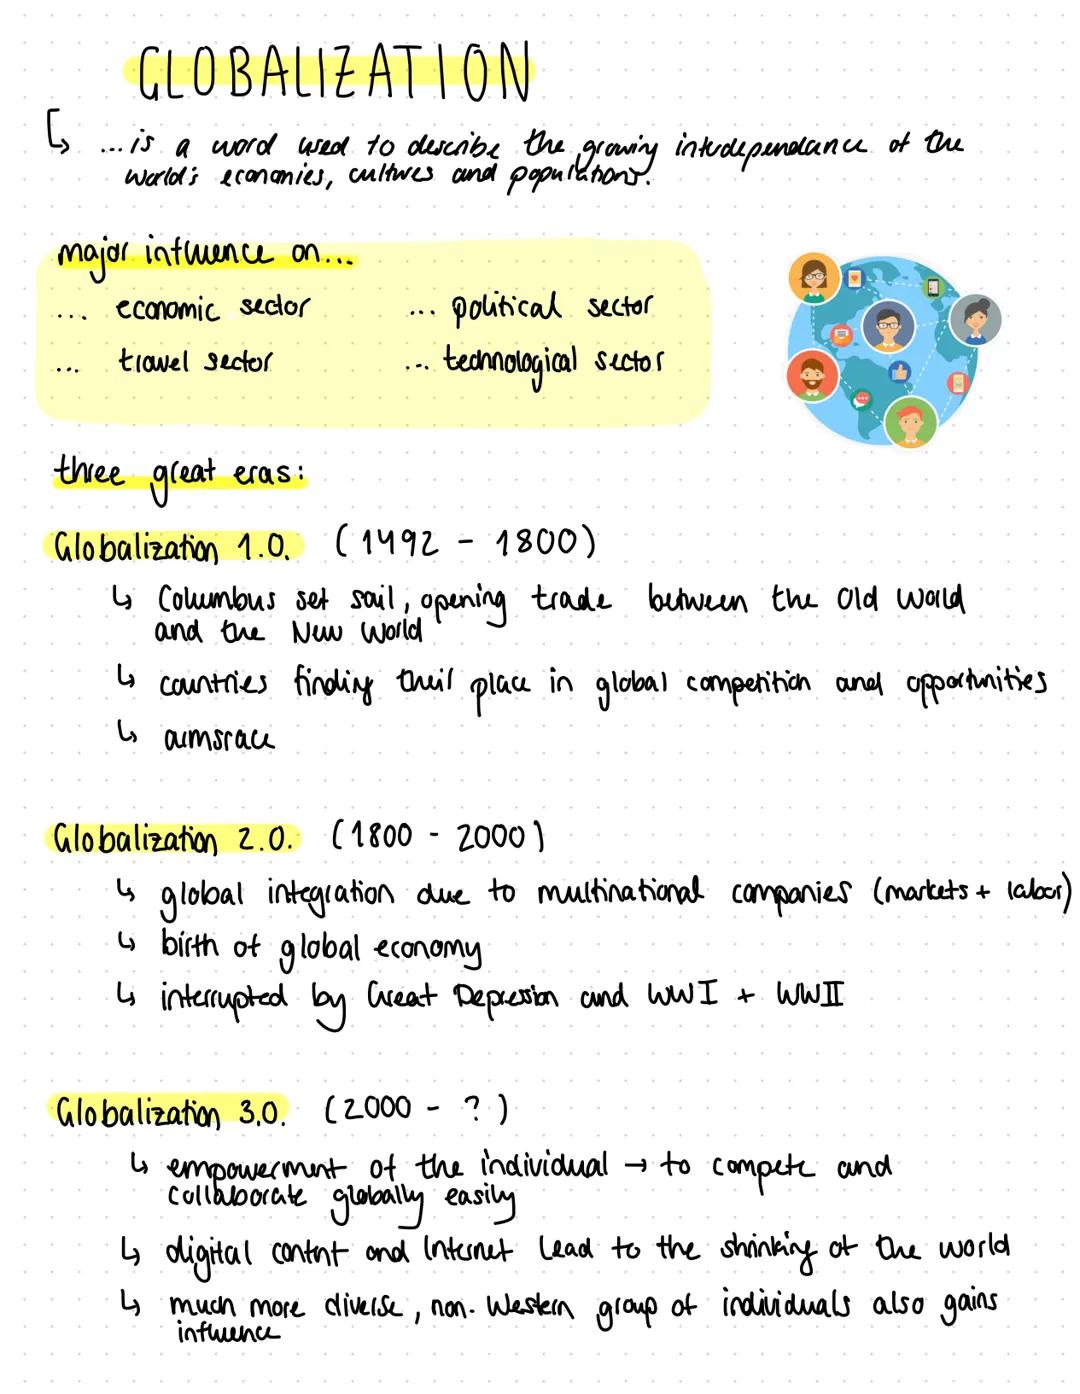 GLOBALIZATION
↳ ... is a word used to describe the growing interdependance of the
world's economies, cultures and populations.
major influence on...
... economic sector ... political sector
... travel sector ... technological sector
three great eras:
Globalization 1.0. (1492 - 1800)
↳ Columbus set sail, opening trade between the Old World
and the New World
↳ countries finding their place in global competition and opportunities
↳ armsrace
Globalization 2.0. (1800 - 2000)
↳ global integration due to multinational companies (markets + labor)
↳ birth of global economy
↳ interrupted by Great Depression and WWI + WWII
Globalization 3.0. (2000 - ?)
↳ empowerment of the individual → to compete and
collaborate globally easily
↳ digital contnt and Internet lead to the shrinking of the world
↳ much more diverse, non-Western group of individuals also gains
influence